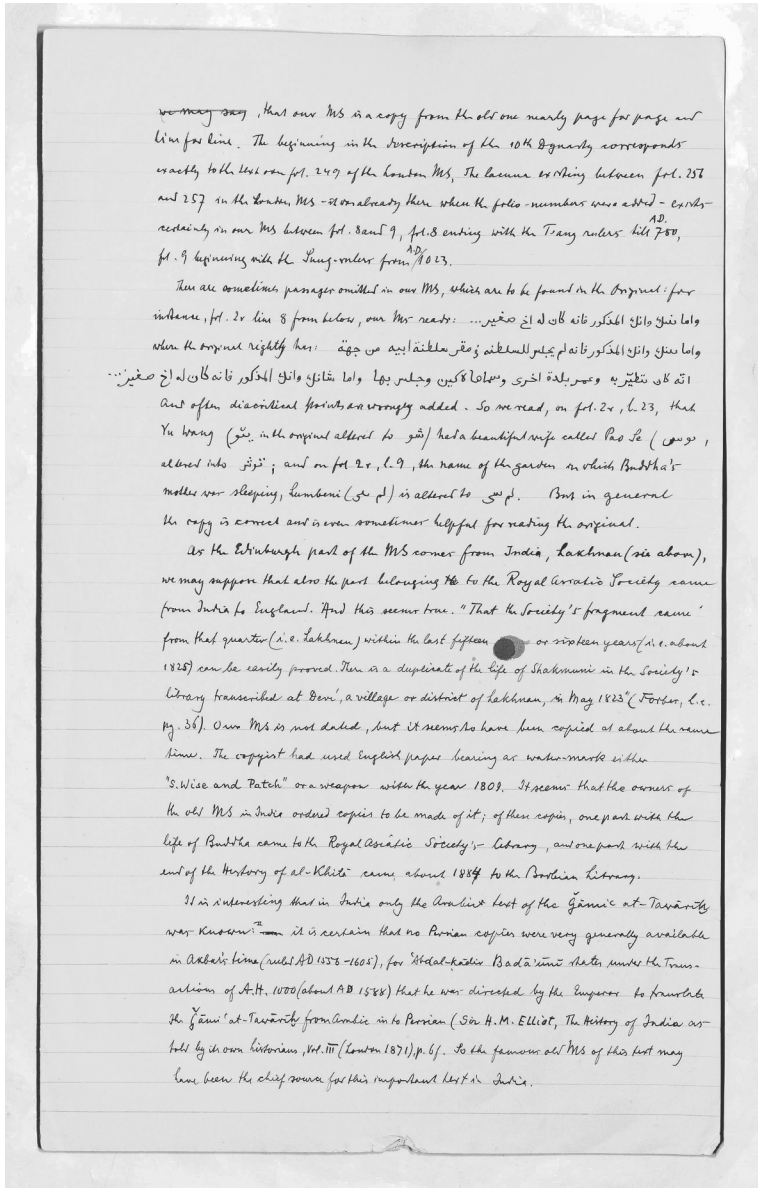 we may say, that our MS is a copy from the old one nearly page for page and
line for line. The beginning in the description of the 10th Dynasty corresponds
exactly to the text on fol. 249 of the London MS, The lacuna existing between fol. 256
and 257 in the London MS - it was already there when the folio-numbers were added - exists
certainly in our MS between fol. 8 and 9, fol. 8 ending with the T'ang rulers till A.D. 780,
fol. 9 beginning with the Sung-rulers from A.D. 1023.
There are sometimes passages omitted in our MS, which are to be found in the Original: for
instance, fol. 2r line 8 from below, our MS reads: واما وانك المذكور فانه كان له اخ صغير...
where the original rightly has: واما وانك المذكور فانه لم يجلس للسلطنة فى مقر سلطنة ابيه من جهة
انه كان تطيّر به وعمر بلدة اخرى وسماها لاكين وجلس بها واما وانك المذكور فانه كان له اخ صغير...
And often diacritical points are wrongly added. So we read, on fol. 2r, l. 23, that
Yu Wang ( in th original altered to شو) had a beautiful wife called Pao Se (
altered into ; and on fol 2r, l. 9, the name of the garden in which Buddha's
mother was sleeping, Lumbeni ( ) is altered to . But in general
the copy is correct and is even sometimes helpful for reading the original.
As the Edinburgh part of the MS comes from India, Lakhnau (see above),
we may suppose that also the part belonging to the Royal Asiatic Society came
from India to England. And this seems true. "That the Society's fragment came
from that quarter (i.e. Lakhnau) within the last fifteen or sixteen years (i.e. about
1825) can be easily proved. There is a duplicate of the life of Shakmuni in the Society's
library transcribed at Devé, a village or district of Lakhnau, in May 1823" (Forbes, l.c.
pg. 36). Our MS is not dated, but it seems to have been copied at about the same
time. The copyist had used English paper bearing as water-mark either
"S. Wise and Patch" or a weapon with the year 1809. It seems that the owners of
the old MS in India ordered copies to be made of it; of these copies, one part with the
life of Buddha came to the Royal Asiatic Society's Library, and one part with the
end of the History of al-Khitā came about 1884 to the Bodleian Library.
It is interesting that in India only the Arabic text of the Ǧāmi' at-Tawārīḫ
was known: " it is certain that no Persian copies were very generally available
in Akbar's time (ruled AD 1556-1605), for 'Abdal-Kādir Badā'ūnī states under the Trans-
actions of A.H. 1000 (about AD 1588) that he was directed by the Emperor to translate
the Ǧāmi' at-Tawārīḫ from Arabic in to Persian (Sir H.M. Elliot, The History of India as
told by its own historians, Vol. III (London 1871), p. 6f. So the famous old MS of this text may
have been the chief source for this important text in India.